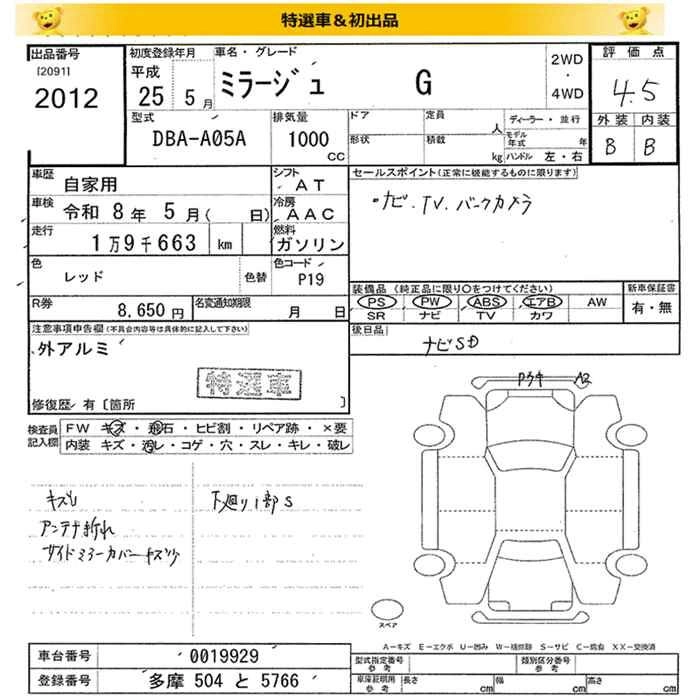 特選車＆初出品
出品番号
[2091]
2012
初度登録年月
平成
25 5月
車名・グレード
ミラージュ G
2WD
・
4WD
評価点
4.5
外装 内装
B B
型式
DBA-A05A
排気量
1000
CC
ドア
形状
定員
人
積載
kg
ディーラー・並行
モデル年式 年
ハンドル 左・右
車歴
自家用
シフト
AT
車検
令和 8年 5月( 日)
冷房
AAC
走行
1万9千663 km
燃料
ガソリン
色
レッド
色替
色コード
P19
R券
8,650円
名変通知期限
月 日
セールスポイント(正常に機能するものに限ります)
・ナビ.TV.バックカメラ
装備品 (純正品に限り○をつけてください)
PS PW ABS エアB AW
SR ナビ TV カワ
新車保証書
有・無
後日品
ナビSD
注意事項申告欄(不具合内容等は具体的に記入して下さい)
外アルミ
特選車
修復歴 有〔箇所 〕
検査員
記入欄
FW キズ・飛石・ヒビ割・リペア跡・×要
内装 キズ・汚レ・コゲ・穴・スレ・キレ・破レ
アンテナ折れ
サイドミラーカバーキズ少
下廻り1部S
A2
スペア
A－キズ E－エクボ U－凹み W－補修跡 S－サビ C－腐食 XX－交換済
車台番号
0019929
登録番号
多摩 504 と 5766
型式指定番号
参考
類別区分番号
参考
車庫証明用
参考
長さ cm 幅 cm 高さ cm